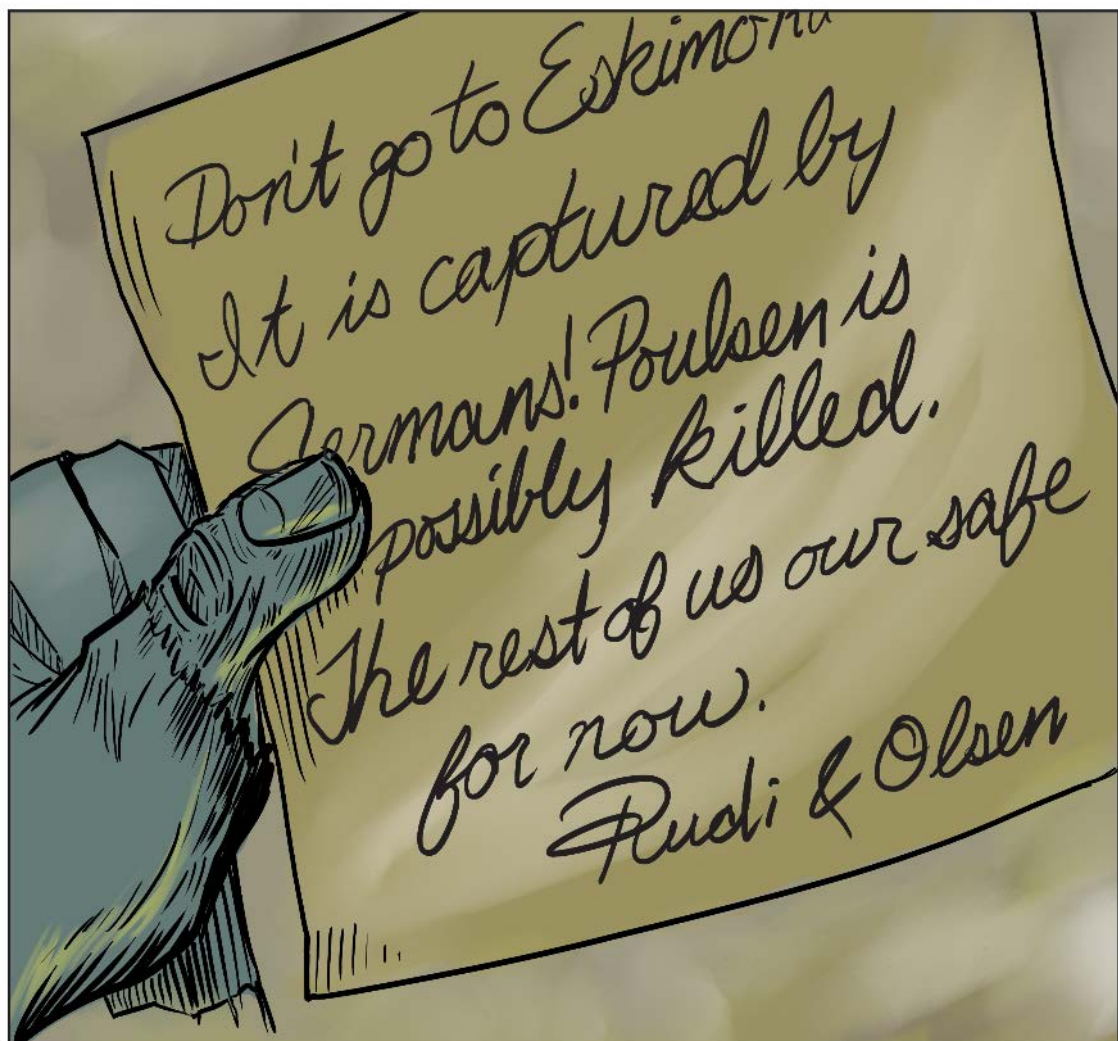 Don't go to
It is captured by
Germans! Poulsen is
possibly killed.
The rest of us our safe
for now.
Rudi & Olsen